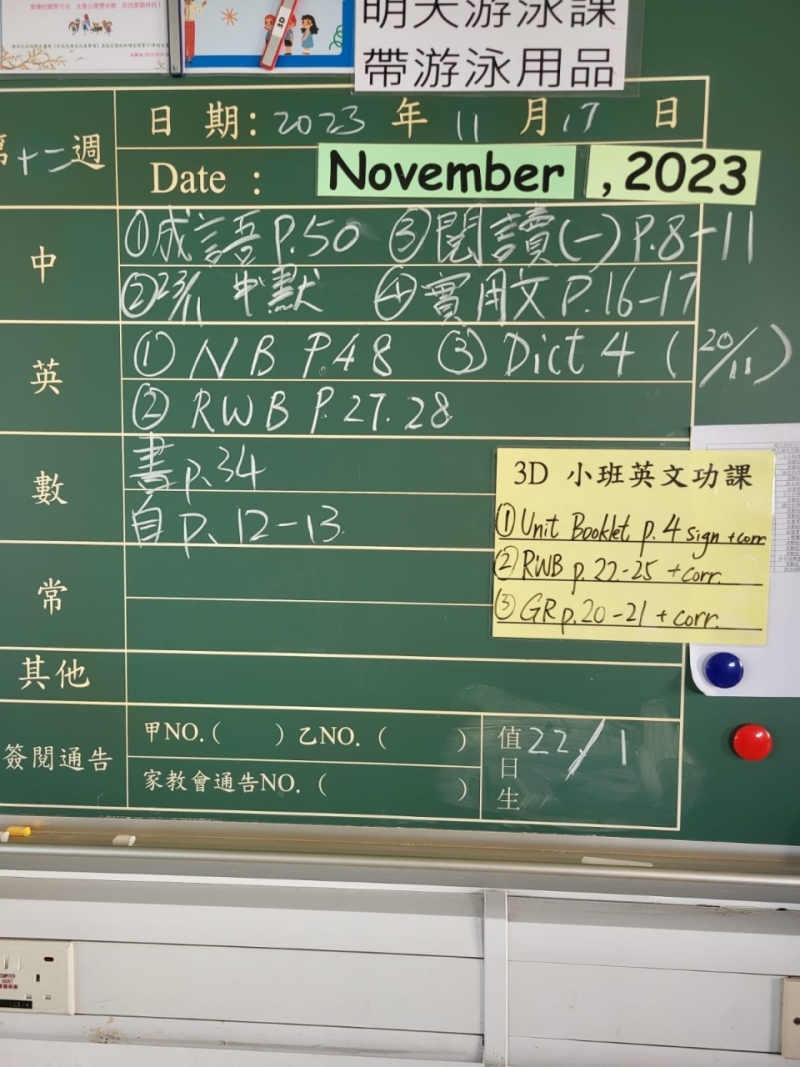 明天游泳課
帶游泳用品
第十二週
日 期: 2023 年 11 月 17 日
Date : November , 2023
中
①成語 P.50 ③閱讀(一) P.8-11
②23/11 中默 ④實用文 P.16-17
英
① NB P.48 ③ Dict 4 (20/11)
② RWB P.27.28
數
書 p.34
自 p. 12-13
3D 小班英文功課
① Unit Booklet p.4 sign + corr
② RWB p.22-25 + corr.
③ GR p.20-21 + corr.
常
其他
簽閱通告
甲NO.( ) 乙NO. ( )
家教會通告NO. ( )
值日生 22/1